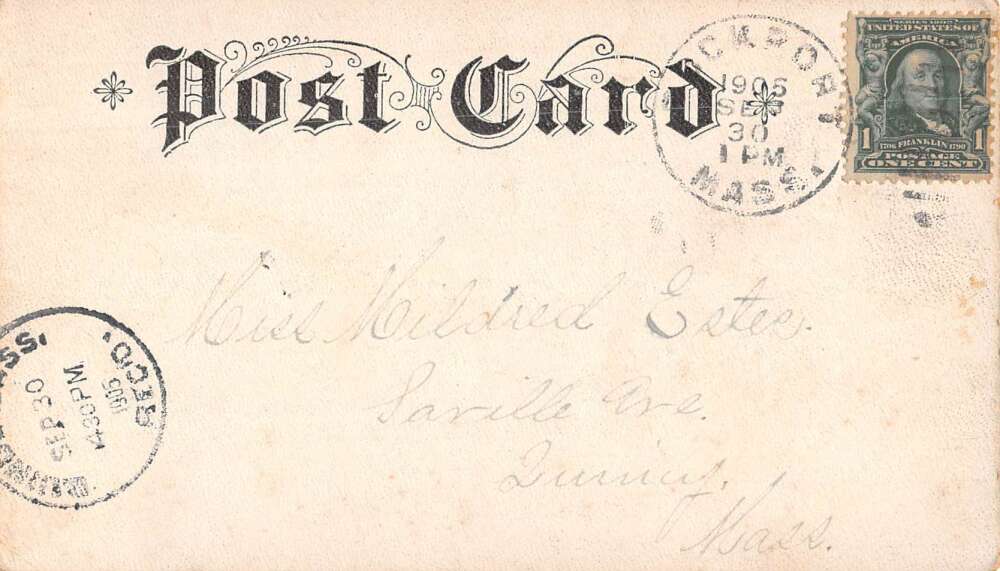 Post Card
ROCKPORT
1905
SEP
30
1 PM
MASS.
SERIES 1902
UNITED STATES OF
AMERICA
1 1
1706 FRANKLIN 1790
POSTAGE
ONE CENT
Miss Mildred Estes.
Saville Ave.
Quincy.
Mass.
MASS.
SEP 30
430PM
1905
REC'D.